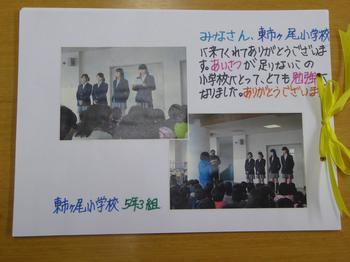 みなさん、東市ヶ尾小学校
に来てくれてありがとうございま
す。あいさつが足りないこの
小学校にとって、とても勉強に
なりました。ありがとうございま
東市ヶ尾小学校 5年3組